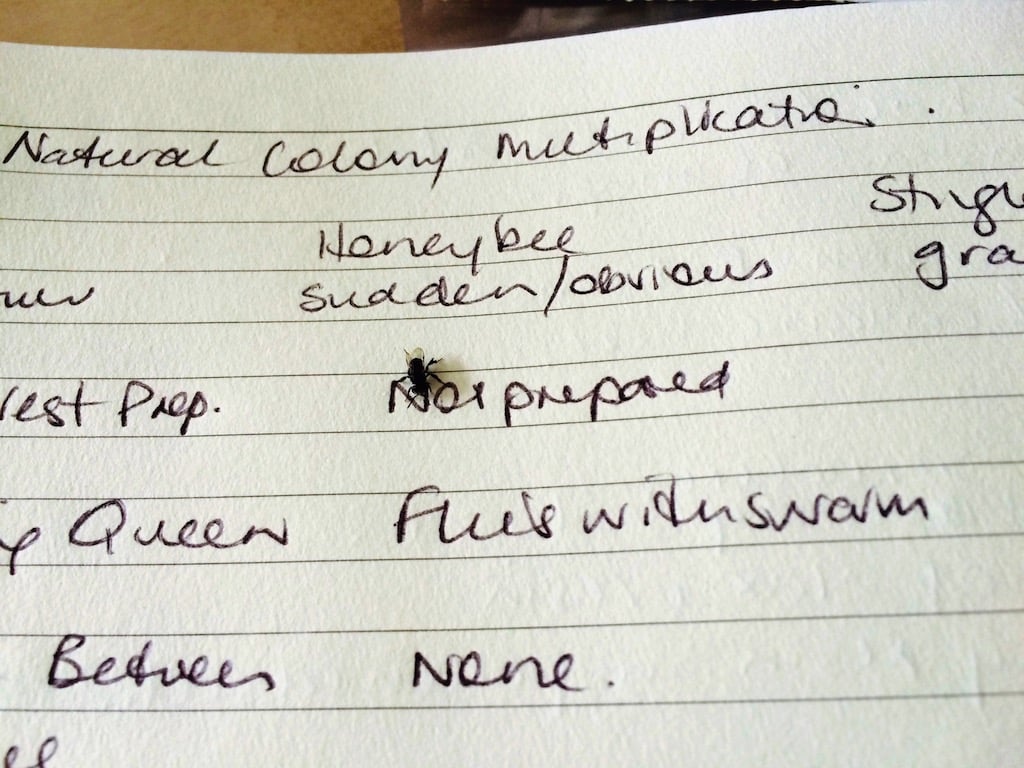 Natural Colony Multiplication.
Honeybee
sudden/obvious gra
est Prep. Not prepared
Queen Flies with swarm
Between None.